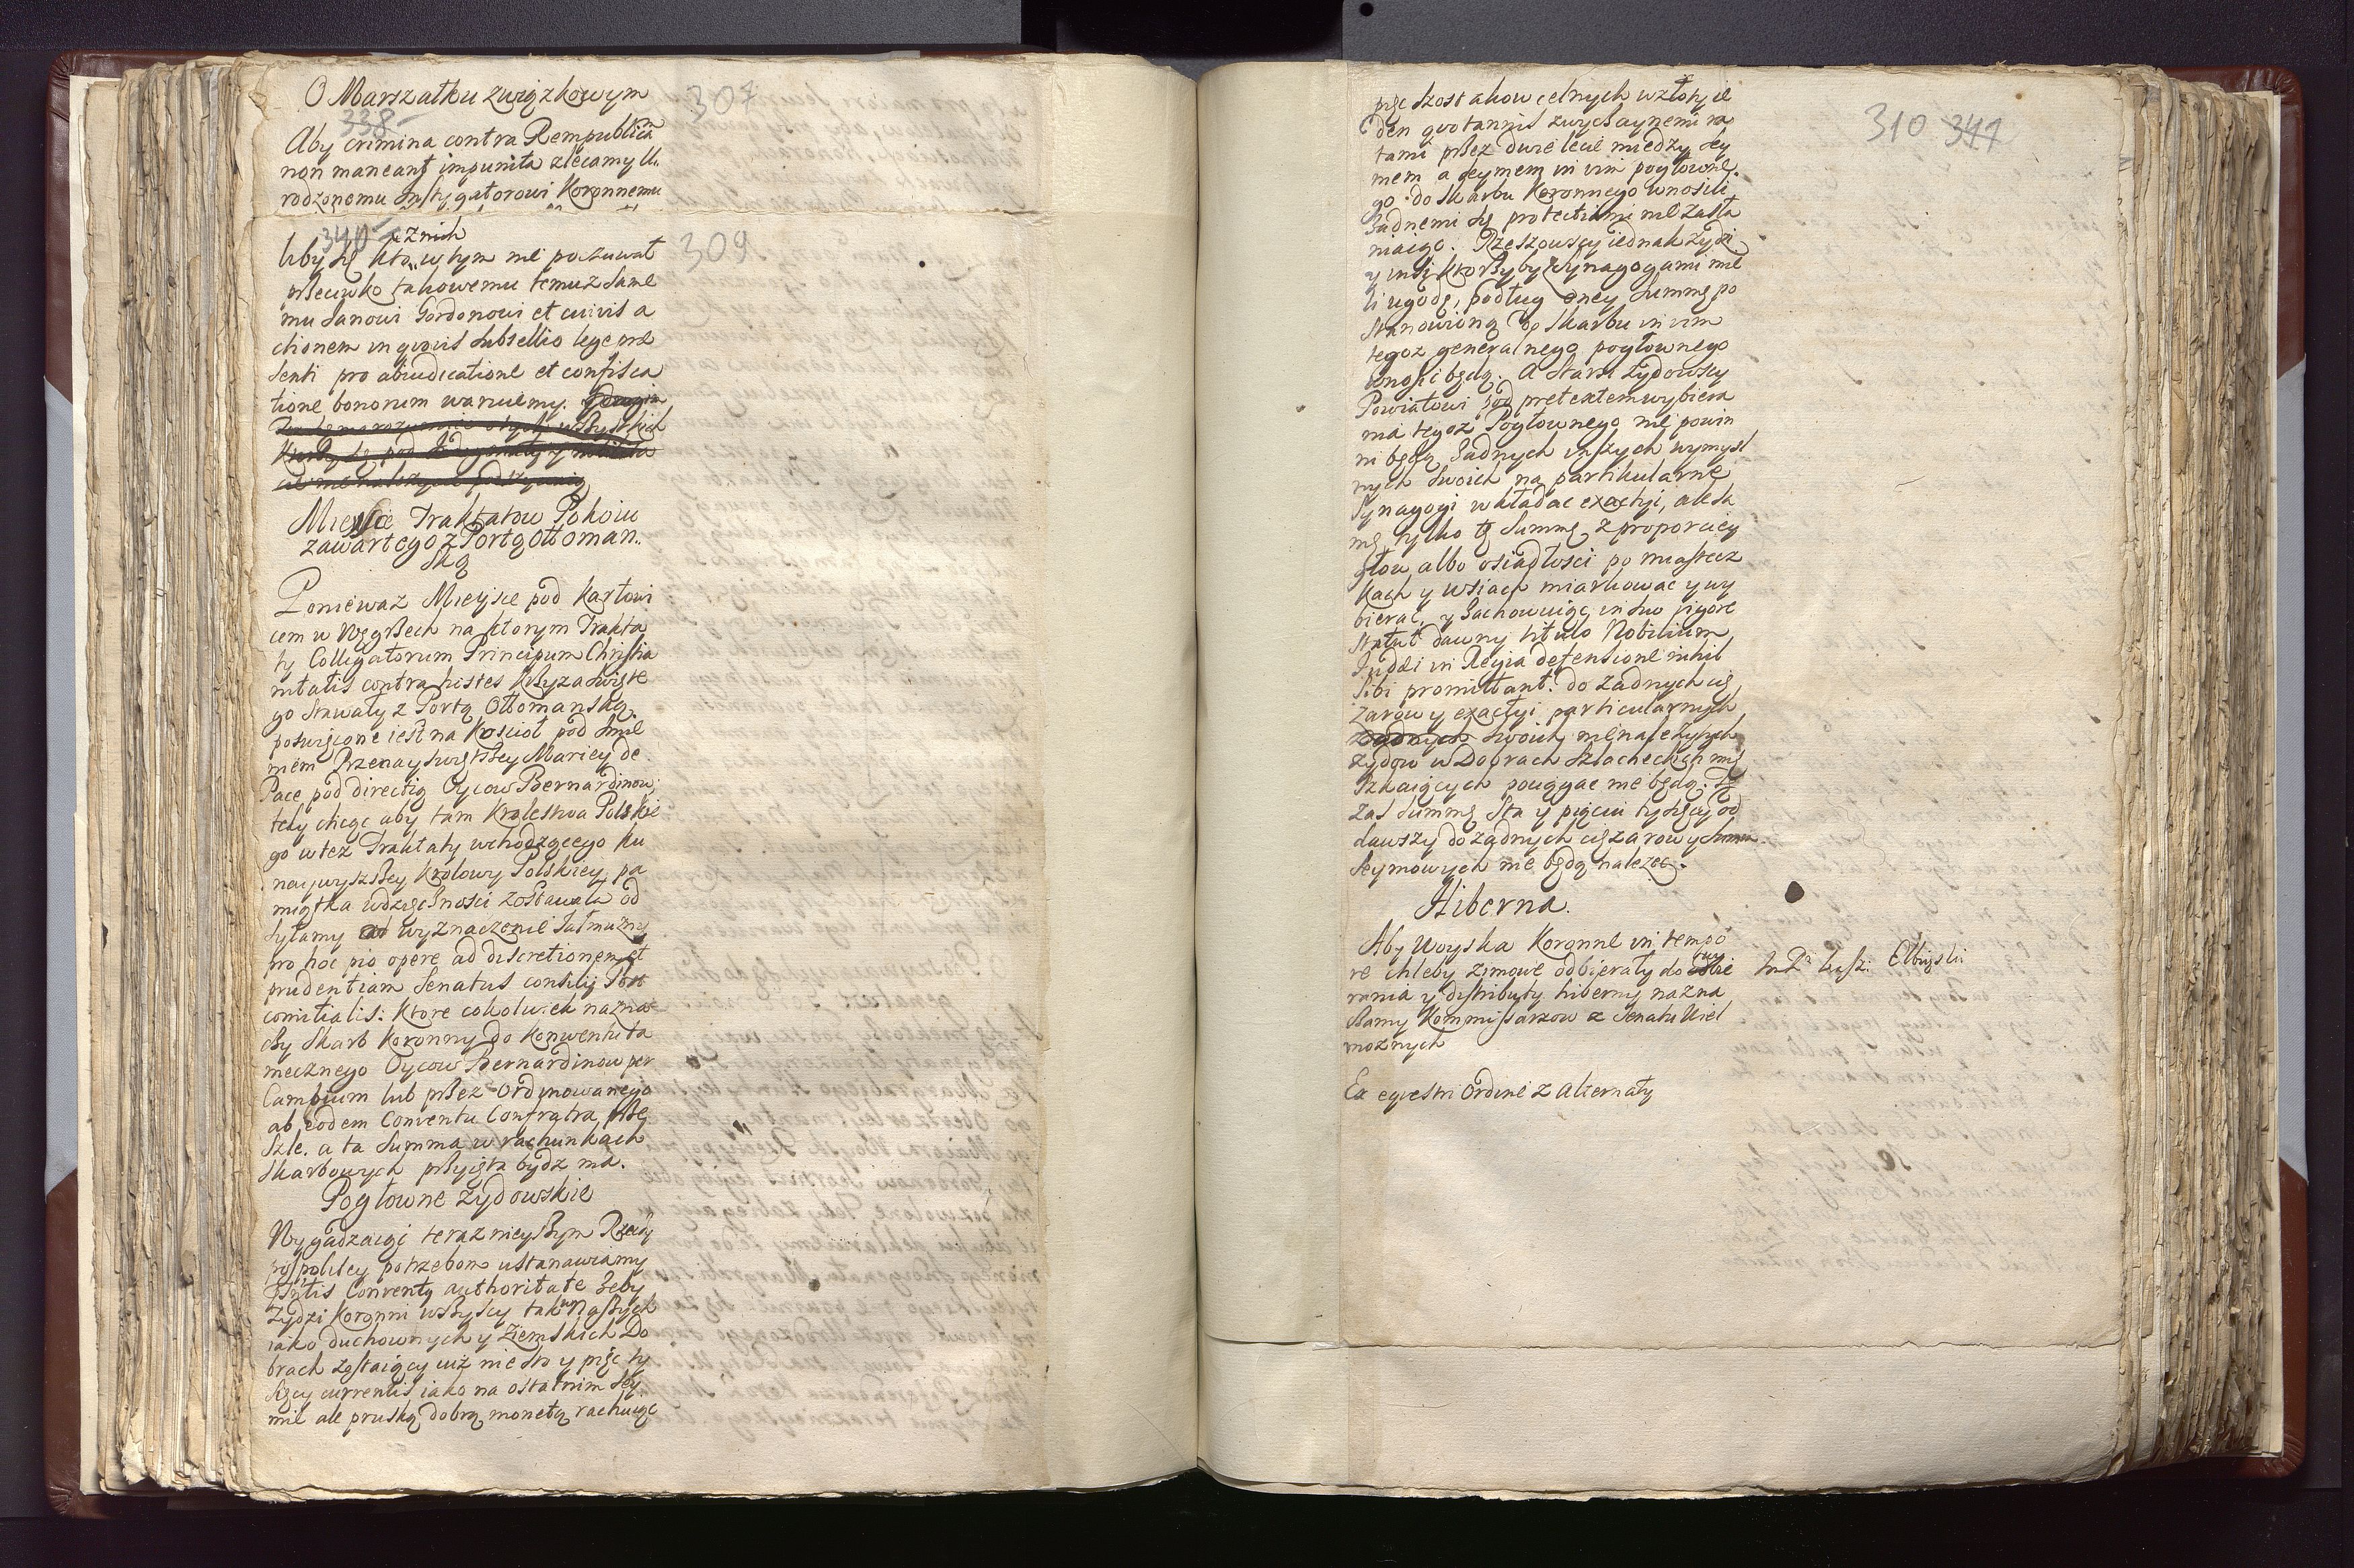 O Marszałku związkowym
307
338
Aby crimina contra Rempublicam
non maneant impunita zlecamy U.
rodzonemu Instygatorowi Koronnemu
340
z nich
309
był się kto w tym nie poczuwał
przeciwko takowemu temuż same
mu Janowi Gordonowi et cuivis a
ctionem in quovis subsellio lege prae
senti pro abiudicatione et confisca
tione bonorum waruiemy.
Mieysce Traktatow Pokoiu
zawartego z Portą Ottoman.
ską
Ponieważ Mieysce pod Karłowi
cem w Węgrzech na ktorym Trakta
ty Colligatorum Principum Christia
nitatis contra hostes Krzyża Swięte
go stawały z Portą Ottomańską,
poswięcone iest na Koscioł pod Imie
niem Przenayswiętszey Mariey de
Pace pod directią Oycow Bernardinow,
tedy chcąc aby tam Krolestwa Polskie
go w też Traktaty wchodzącego ku
naywyższey Krolowy Polskiey pa
miątka wdzięcznosci zostawała od
syłamy wyznaczenie Jałmużny
pro hoc pio opere ad discretionem et
prudentiam Senatus consilij Post
comitialis: ktore cokolwiek nazna
czy Skarb Koronny do Konwentu ta
mecznego Oycow Bernardinow per
Cambium lub przez Ordynowanego
ab eodem Conventu Confratra prze
szle. a ta Summa w rachunkach
Skarbowych przyięta bydz ma.
Pogłowne żydowskie
Wygadzaiąc teraznieyszym Rzeczy
pospolitey potrzebom ustanawiamy
pntis Conventus authoritate żeby
Zydzi Koronni wszyscy tak w Naszych
iako duchownych y Ziemskich Do
brach zostaiący iuż nie sto y pięć ty
sięcy currentis iako na ostatnim Sey
mie ale pruską dobrą monetą rachuiąc
310 341
pięć szostakow celnych w złoty ie
den quotannis zwyczaynemi ra
tami przez dwie lecie miedzy Sey
mem a Seymem in vim pogłowne.
go do Skarbu Koronnego wnosili
żadnemi się protectiami nie zasła
niaiąc. Rzeszowscy iednak żydzi
y insi ktorzyby z Synagogami mie
li ugodę, podług oney Summę po
stanowioną do Skarbu in vim
tegoż generalnego pogłownego
wnosić będą. A Starsi Zydowscy
Powiatowi pod pretextem wybiera
nia tegoż Pogłownego nie powin
ni będą żadnych inszych wymysl
nych swoich na partikularne
Synagogi wkładać exactyi, ale sa
mę tylko tę Summę z proporciey
głow albo osiadłosci po miastecz
kach y wsiach miarkować y wy
bierać, y zachowuiąc in suo vigore
Statut dawny titulo Nobilium
Iudaei in Regia defensione nihil
sibi promittant. do żadnych cię
żarow y exactyi particularnych
swoich nienależytych
żydow w Dobrach Szlacheckich mie
szkaiących pociągać nie będą. Tę
zas Summę sta y pięciu tysięcy od
dawszy do żadnych ciężarow y Summ
Seymowych nie będą należeć.
Hiberna.
Aby Woyska Koronne in tempo
re chleby zimowe odbierały do wy
rania y distributy hiberny nazna
czamy Kommissarzow z Senatu Wiel
możnych
Elbinski
Ex equestri Ordine z alternaty